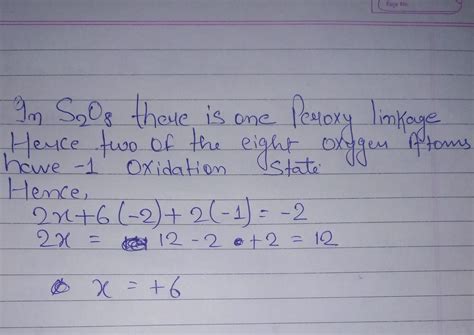 Page No.
In S₂O₈ there is one Peroxy linkage
Hence two of the eight oxygen Atoms
have -1 Oxidation State
Hence,
2x+6(-2)+2(-1)=-2
2x = 12-2+2=12
x = +6